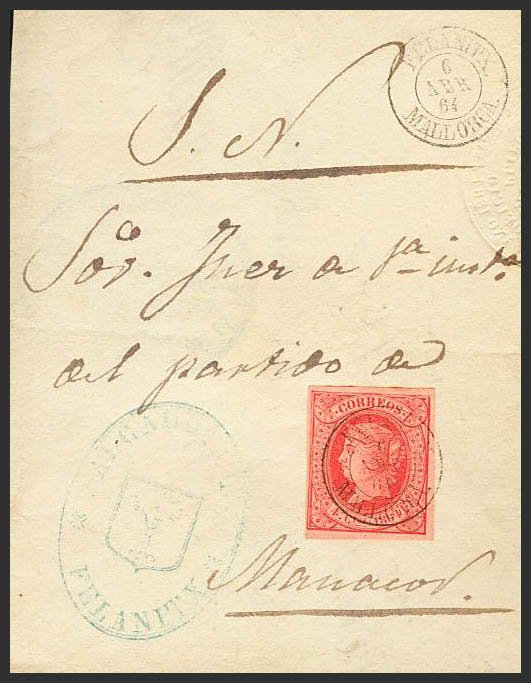 FELANITX.
6
ABR
64
MALLORCA.
S. N.
Sor. Juez de 1a. insta.
del partido de
CORREOS.
MALLORCA
ALCALDIA
FELANITX
Manacor.